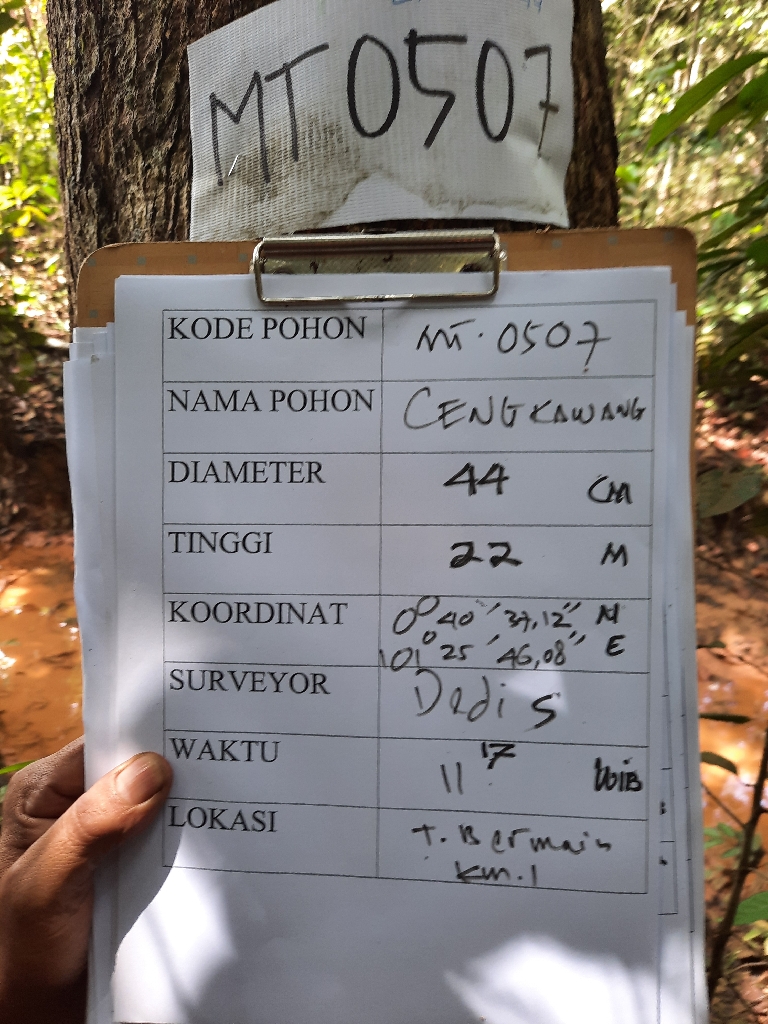 MT 0507
KODE POHON MT. 0507
NAMA POHON CENGKAWANG
DIAMETER 44 CM
TINGGI 22 M
KOORDINAT 0° 40' 37,12" N
101° 25' 46,08" E
SURVEYOR Dedi S
WAKTU 11 17 WIB
LOKASI T. Bermain
Km. 1